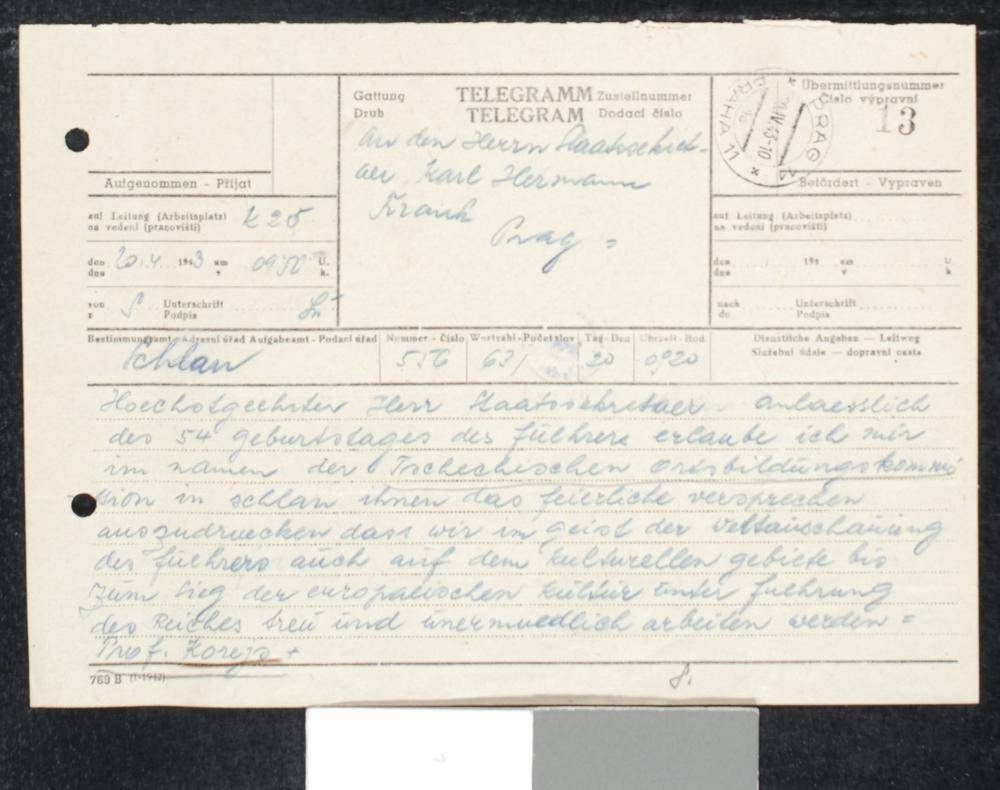 Gattung TELEGRAMM Zustellnummer
Drub TELEGRAM Dodací číslo
Übermittlungsnummer
Číslo vypravní
13
PRAG
PRAHA
An den Herrn Staatssekret-
aer Karl Hermann
Frank
Prag =
Aufgenommen - Přijat
Befördert - Vypraven
auf Leitung (Arbeitsplatz) K 25
na vedení (pracoviště)
auf Leitung (Arbeitsplatz)
na vedení (pracoviště)
den 20.4. 1943 um U.
dne v k.
den 194 um U.
dne v k.
von S Unterschrift
z Podpis
nach Unterschrift
do Podpis
Bestimmungsamt - Adresní úřad Aufgabeamt - Podací úřad
Nummer - Číslo
Wortzahl - Počet slov
Tag - Den
Uhrzeit - Hod.
Dienstliche Angaben — Leitweg
Služební údaje — dopravní cesta
Schlan 556 63/ 20 0920
Hoechstgeehrter Herr Staatssekretaer anlaesslich
des 54 geburtstages des fuehrers erlaube ich mir
im namen der Tschechischen ortsbildungskommis
sion in schlan ihnen das feierliche versprechen
auszudruecken dass wir im geist der weltanschauung
des fuehrers auch auf dem kulturellen gebiete bis
zum sieg der europaeischen kultur unter fuehrung
des Reiches treu und unermuedlich arbeiten werden =
Prof. Korejs +
769 B (I-1942)
8.